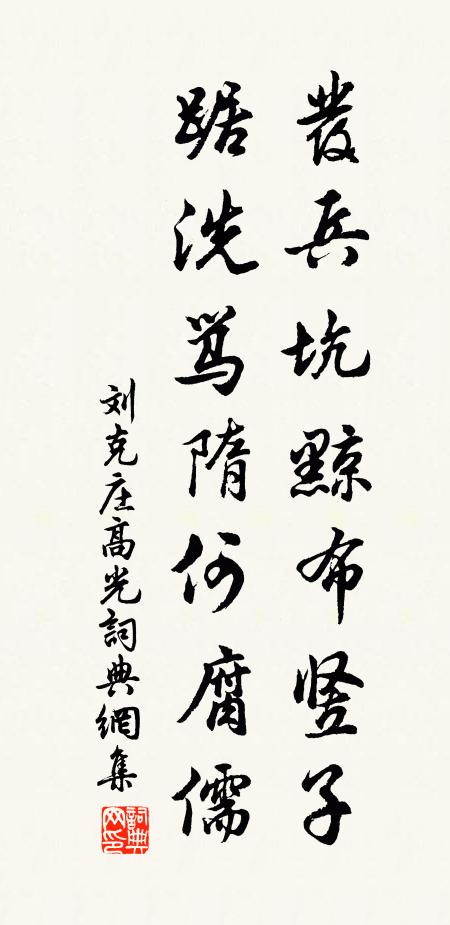 發兵坑黥布竖子
踞洗骂隋何腐儒
刘克庄高光詞典網集
詞典
网印